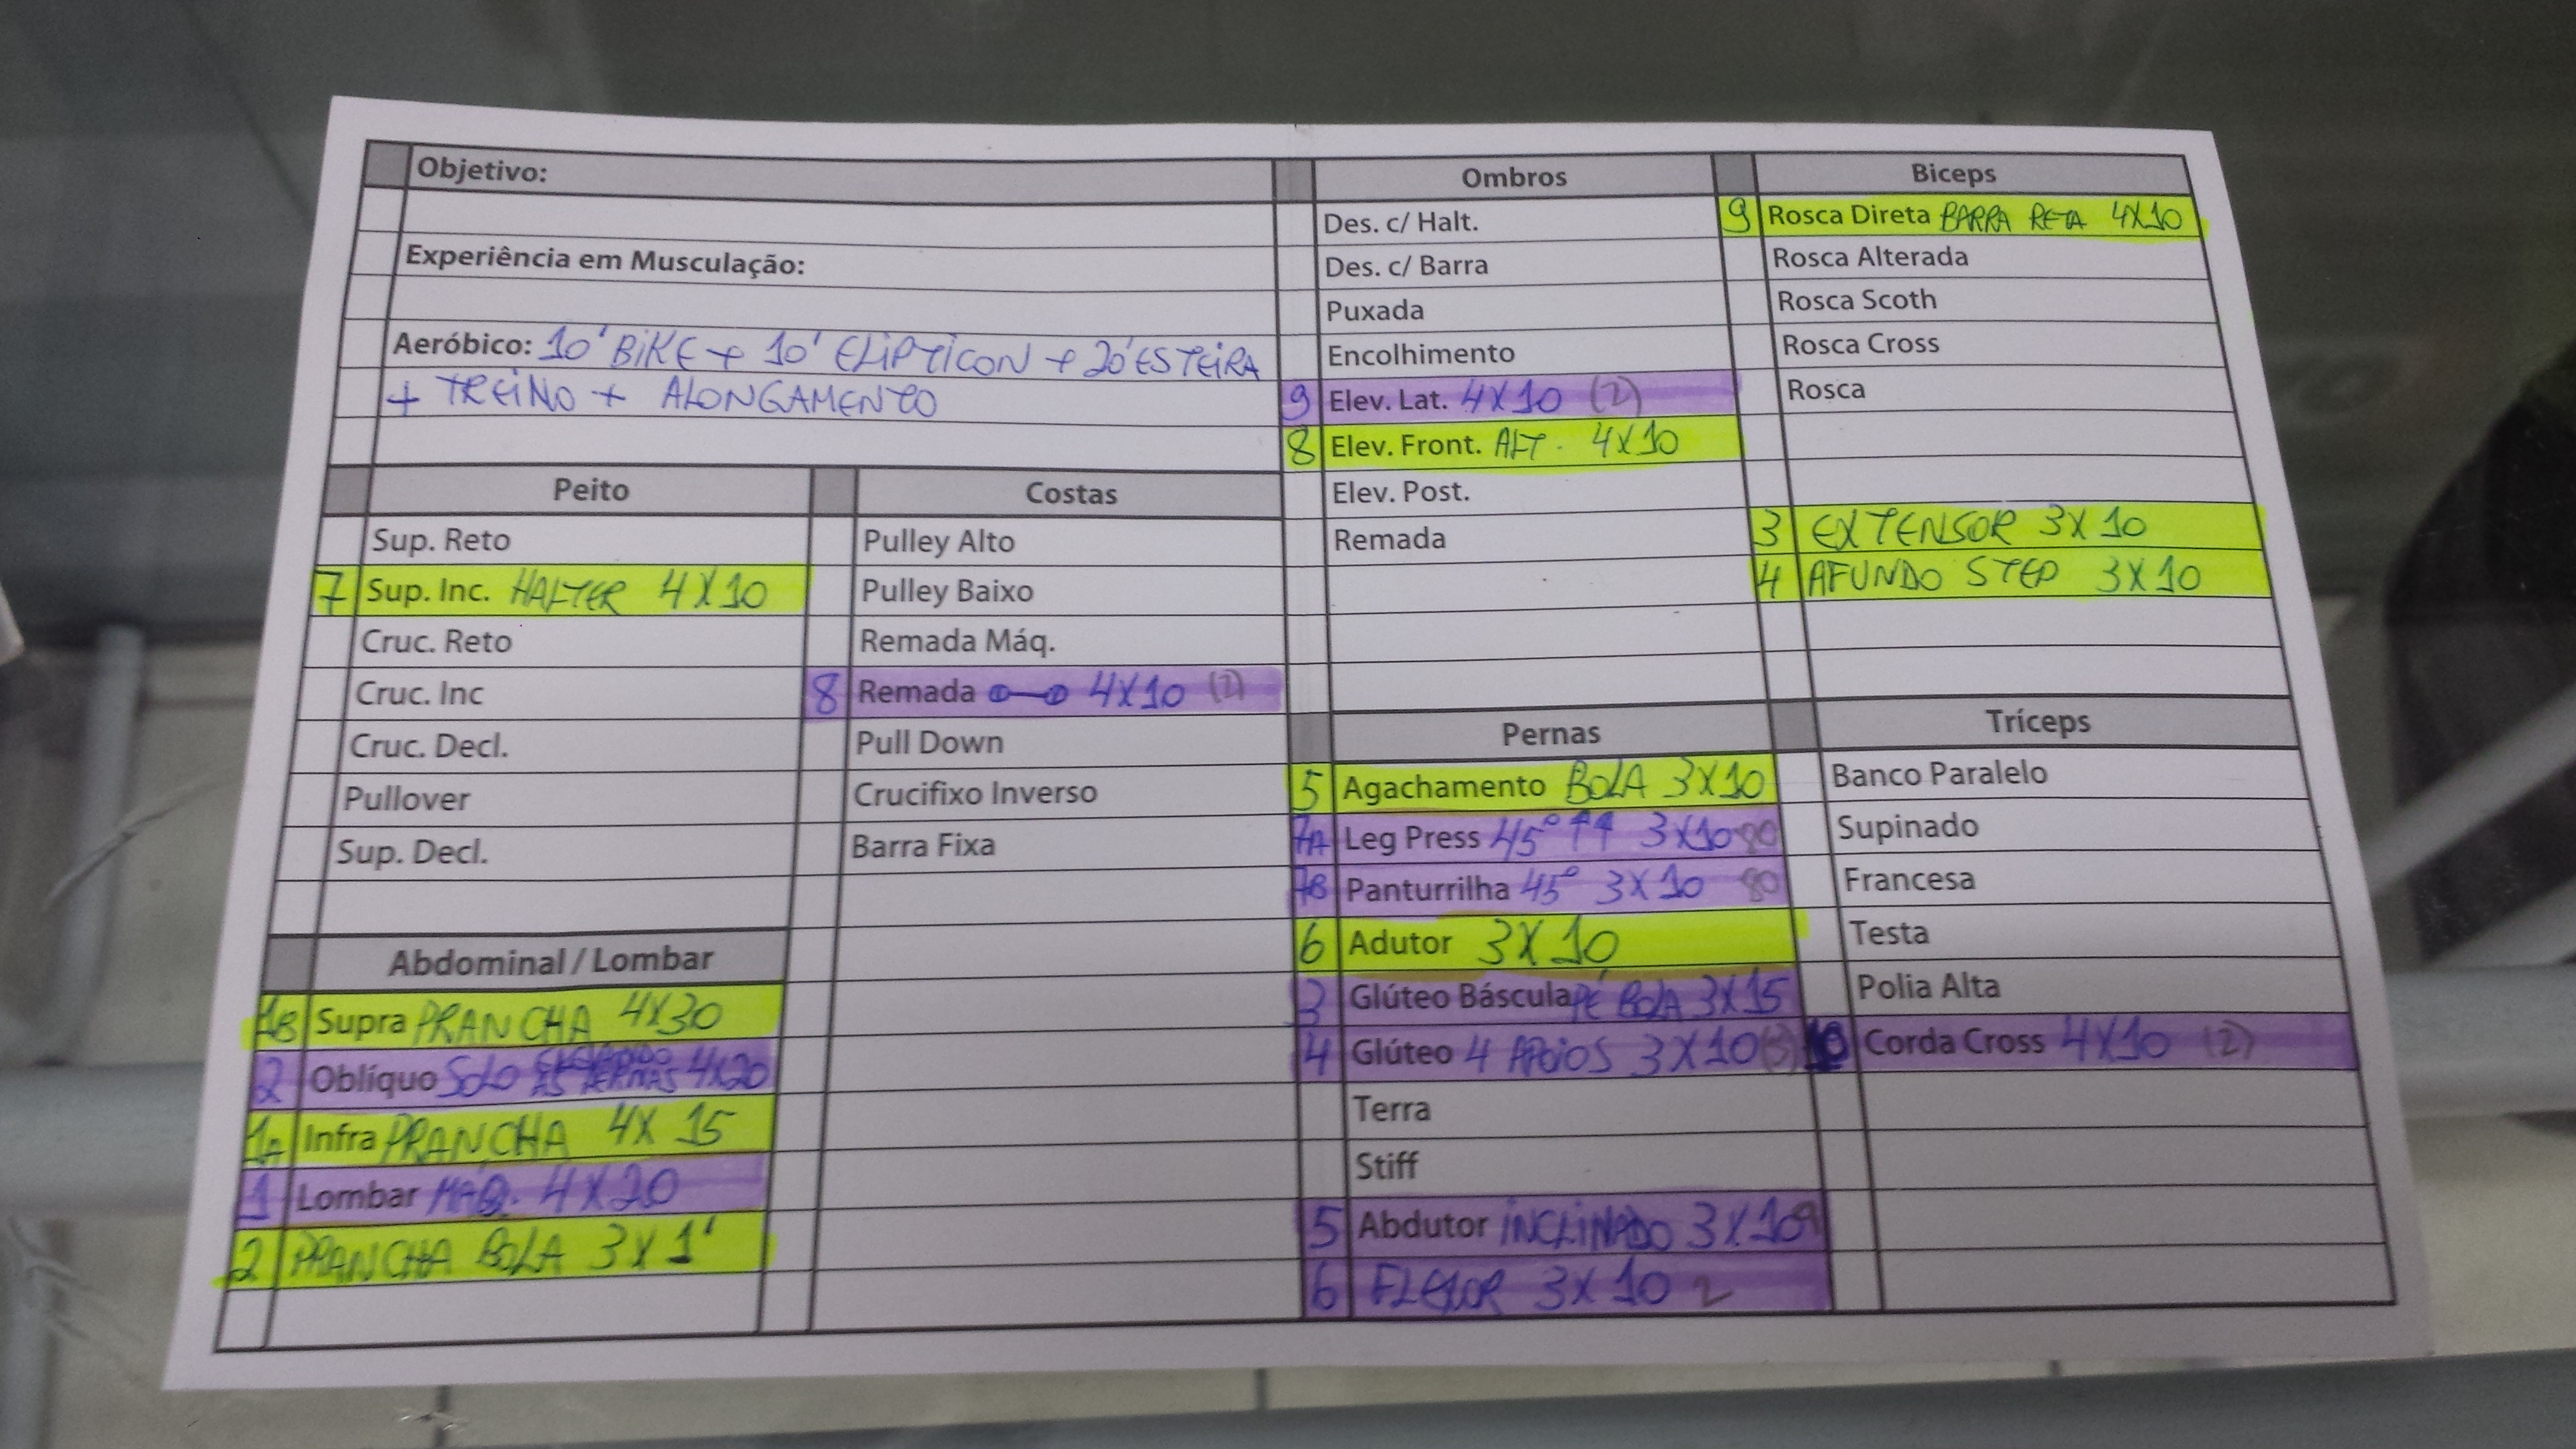 Objetivo:
Experiência em Musculação:
Aeróbico: 10' BIKE + 10' ELIPTICON + 20' ESTEIRA
+ TREINO + ALONGAMENTO
Peito
Sup. Reto
7 Sup. Inc. HALTER 4X10
Cruc. Reto
Cruc. Inc
Cruc. Decl.
Pullover
Sup. Decl.
Abdominal / Lombar
1B Supra PRANCHA 4X30
2 Oblíquo SOLO AS PERNAS 4X20
1A Infra PRANCHA 4X 15
1 Lombar MAQ. 4X20
2 PRANCHA BOLA 3X1'
Costas
Pulley Alto
Pulley Baixo
Remada Máq.
8 Remada 4X10 (2)
Pull Down
Crucifixo Inverso
Barra Fixa
Ombros
Des. c/ Halt.
Des. c/ Barra
Puxada
Encolhimento
9 Elev. Lat. 4X10 (2)
8 Elev. Front. ALT. 4X10
Elev. Post.
Remada
Pernas
5 Agachamento BOLA 3X10
7A Leg Press 45° ↑↑ 3X10 80
7B Panturrilha 45° 3X10 80
6 Adutor 3X10
3 Glúteo Báscula PÉ BOLA 3X15
4 Glúteo 4 APOIOS 3X10
Terra
Stiff
5 Abdutor INCLINADO 3X10
6 FLEXOR 3X10 2
Biceps
9 Rosca Direta BARRA RETA 4X10
Rosca Alterada
Rosca Scoth
Rosca Cross
Rosca
3 EXTENSOR 3X10
4 AFUNDO STEP 3X10
Tríceps
Banco Paralelo
Supinado
Francesa
Testa
Polia Alta
10 Corda Cross 4X10 (2)